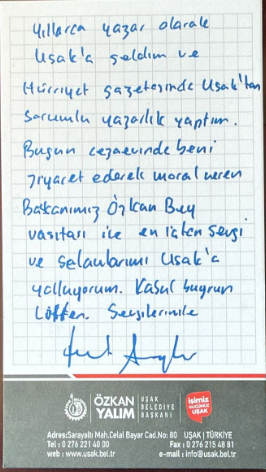 yıllarca yazar olarak
Uşak'a geldim ve
Hürriyet gazetesinde Uşak'tan
Sorumlu yazarlık yaptım.
Bugün cezaevinde beni
ziyaret ederek moral veren
Başkanımız Özkan Bey
vasıtası ile en içten sevgi
ve selamlarımı Uşak'a
yolluyorum. Kabul buyrun
Lütfen. Sevgilerimle
ÖZKAN YALIM
UŞAK BELEDİYE BAŞKANI
işimiz gücümüz UŞAK
Adres:Sarayaltı Mah.Celal Bayar Cad.No: 80 UŞAK | TÜRKİYE
Tel : 0 276 221 40 00 Fax : 0 276 215 48 81
web : www.usak.bel.tr e-mail : info@usak.bel.tr